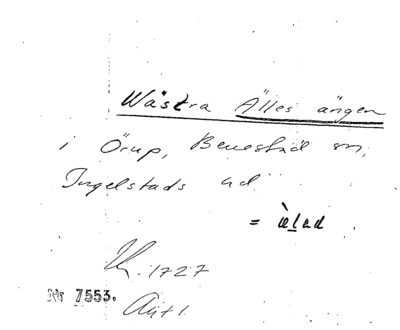 Wästra Älles ängen
i Örup, Benestad sn,
Ingelstads hd
= ælad
1727
Nr 7553.